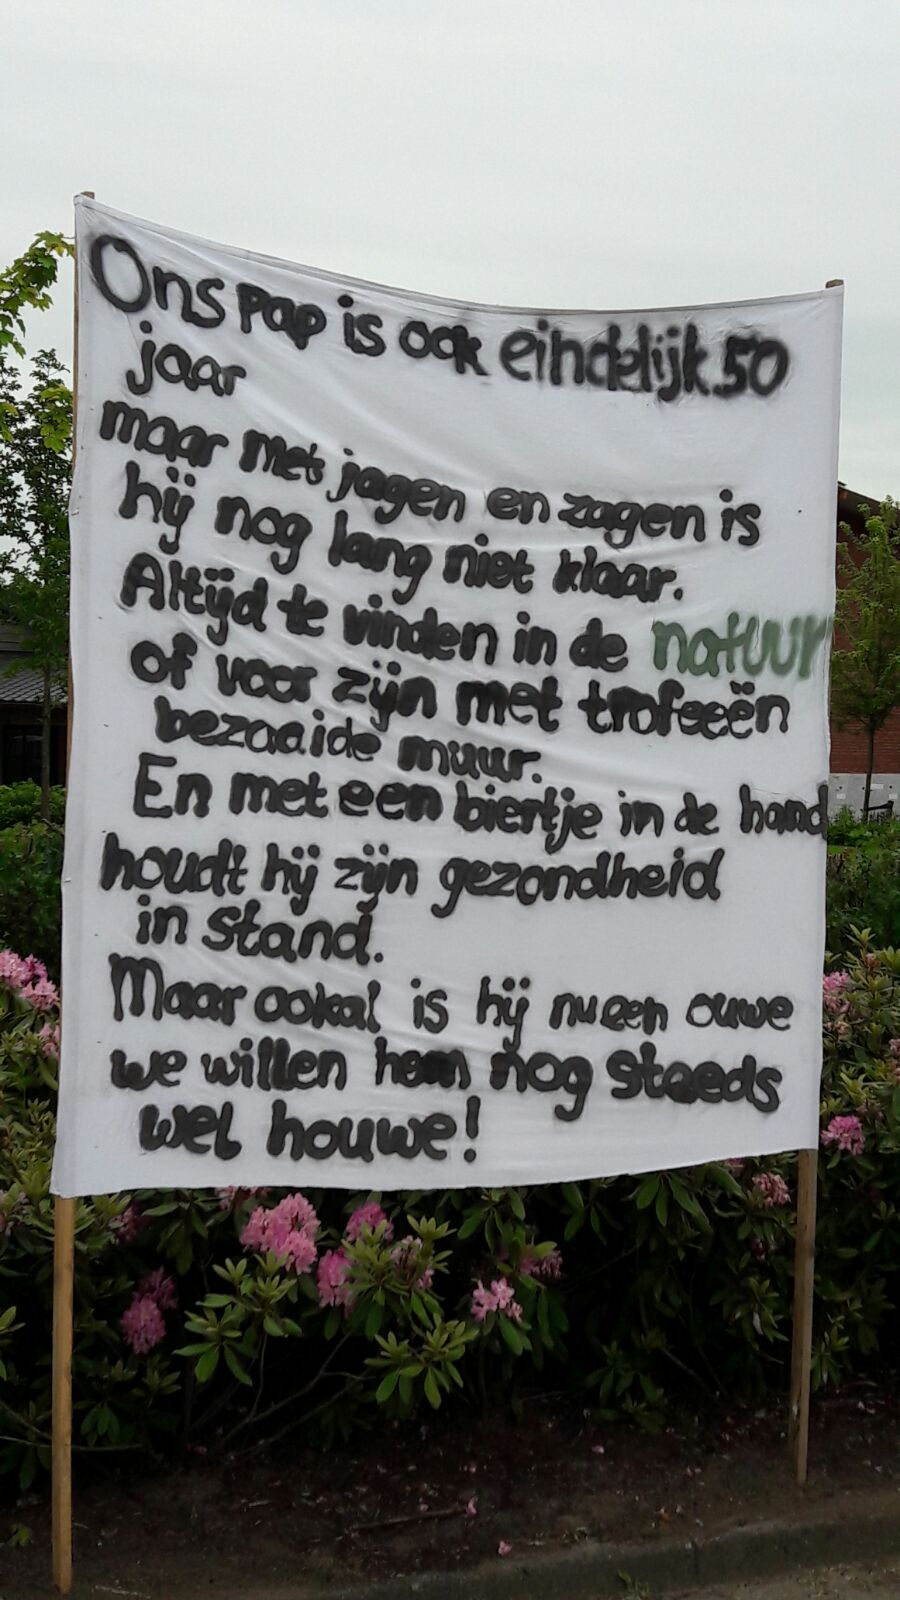 Ons pap is ook eindelijk 50
jaar
maar met jagen en zagen is
hij nog lang niet klaar.
Altijd te vinden in de natuur
of voor zijn met trofeeën
bezaaide muur.
En met een biertje in de hand
houdt hij zijn gezondheid
in stand.
Maar ookal is hij nu een ouwe
we willen hem nog steeds
wel houwe!